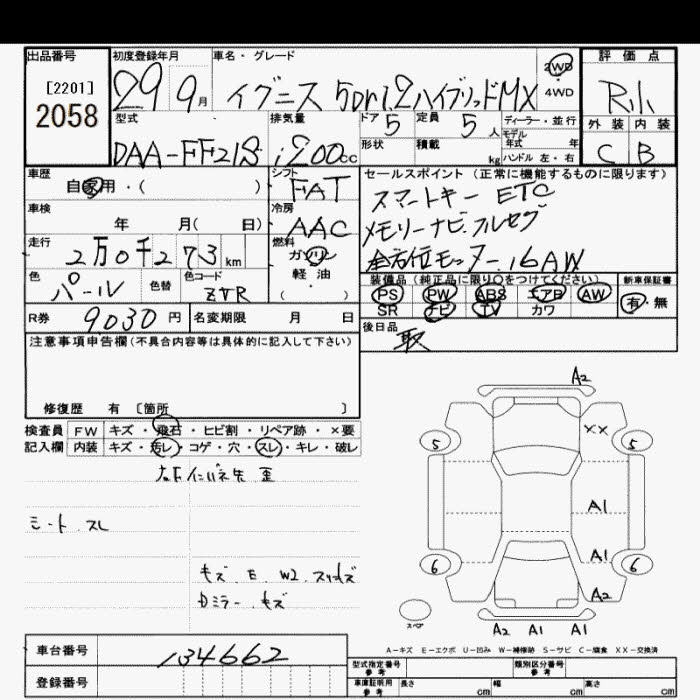 出品番号 初度登録年月 車名・グレード 2WD・4WD 評価点
[2201]
2058
29 9月 イグニス 5Dr1.2ハイブリッドMX R小
型式 排気量 ドア 5 定員 5人 ディーラー・並行 外装 内装
DAA-FF21S 1200cc 形状 積載 kg モデル年式 年 ハンドル 左・右 C B
車歴 シフト セールスポイント(正常に機能するものに限ります)
自家用・( ) FAT スマートキー ETC
車検 冷房 メモリーナビ.フルセグ
年 月( 日) AAC
走行 燃料 全方位モニター.16AW
2万0千273km ガソリン
色 色替 色コード 軽油 装備品(純正品に限り○をつけてください) 新車保証書
パール ZVR ( ) PS PW ABS エアB AW 有・無
SR ナビ TV カワ
R券 9030円 名変期限 月 日 後日品
取
注意事項申告欄(不具合内容等は具体的に記入して下さい)
修復歴 有 〔箇所 〕
検査員 FW キズ・飛石・ヒビ割・リペア跡・×要
記入欄 内装 キズ・汚レ・コゲ・穴・スレ・キレ・破レ
シート スレ
キズ.E.W2.スリキズ
ミラー.キズ
A2
XX
5 5
A1
A1
6 6
A2
スペア
A2 A1 A1
A-キズ E-エクボ U-凹み W-補修跡 S-サビ C-腐食 XX-交換済
車台番号 134662
登録番号
型式指定番号 参考 類別区分番号 参考
車庫証明用 参考 長さ cm 幅 cm 高さ cm